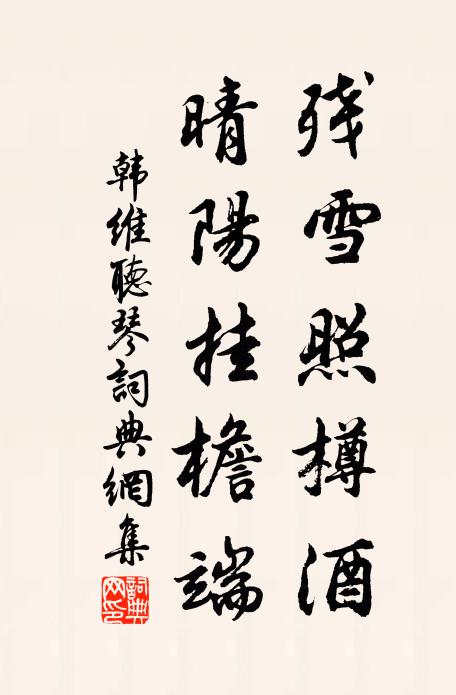 残雪照樽酒
晴陽挂檐端
韩維聽琴詞典網集
詞典网印